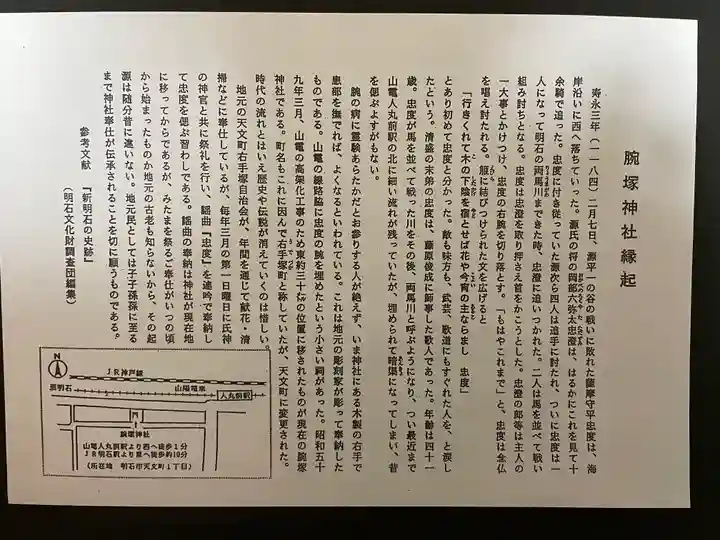 腕塚神社縁起
寿永三年(一一八四)二月七日、源平一の谷の戦いに敗れた薩摩守平忠度は、海
岸沿いに西へ落ちていった。源氏の将の岡部六弥太忠澄は、はるかにこれを見て十
余騎で追った。忠度に付き従っていた源次ら四人は追手に討たれ、ついに忠度は一
人になって明石の両馬川まできた時、忠澄に追いつかれた。二人は馬を並べて戦い
組み討ちとなる。忠度は忠澄を取り押さえ首をかこうとした。忠澄の郎等は主人の
一大事とかけつけ、忠度の右腕を切り落とす。「もはやこれまで」と、忠度は念仏
を唱え討たれる。箙に結びつけられた文を広げると
「行きくれて木の下陰を宿とせば花や今宵の主ならまし 忠度」
とあり初めて忠度と分かった。敵も味方も、武芸、歌道にもすぐれた人を、と涙し
たという。清盛の末弟の忠度は、藤原俊成に師事した歌人であった。年齢は四十一
歳。忠度が馬を並べて戦った川をその後、両馬川と呼ぶようになり、つい最近まで
山電人丸前駅の北に細い流れが残っていたが、埋められて暗渠になってしまい、昔
を偲ぶよすがもない。
腕の病に霊験あらたかだとお参りする人が絶えず、いま神社にある木製の右手で
患部を撫でれば、よくなるといわれている。これは地元の彫刻家が彫って奉納した
ものである。山電の線路脇に忠度の腕を埋めたという小さい祠があった。昭和五十
九年三月、山電の高架化工事のため東約三十㍍の位置に移されたものが現在の腕塚
神社である。町名もこれに因んで右手塚町と称していたが、天文町に変更された。
時代の流れとはいえ歴史や伝説が消えていくのは惜しい。
地元の天文町右手塚自治会が、年間を通じて献花・清
掃などに奉仕しているが、毎年三月の第一日曜日に氏神
の神官と共に祭礼を行い、謡曲「忠度」を連吟で奉納し
て忠度を偲ぶ習わしである。謡曲の奉納は神社が現在地
に移ってからであるが、みたまを祭るご奉仕がいつの頃
から始まったものか地元の古老も知らないから、その起
源は随分昔に違いない。地元民としては子子孫孫に至る
まで神社奉仕が伝承されることを切に願うものである。
参考文献 『新明石の史跡』
(明石文化財調査団編集)
N
JR神戸線
至明石
山陽電車
人丸前駅
腕塚神社
山電人丸前駅より西へ徒歩1分
JR明石駅より東へ徒歩約10分
(所在地 明石市天文町1丁目)